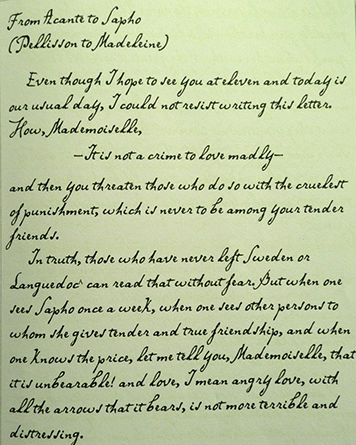 From Acante to Sapho
(Pellisson to Madeleine)
Even though I hope to see you at eleven and today is
our usual day, I could not resist writing this letter.
How, Mademoiselle,
—It is not a crime to love madly—
and then you threaten those who do so with the cruelest
of punishment, which is never to be among your tender
friends.
In truth, those who have never left Sweden or
Languedoc can read that without fear. But when one
sees Sapho once a week, when one sees other persons to
whom she gives tender and true friendship, and when
one knows the price, let me tell you, Mademoiselle, that
it is unbearable! and love, I mean angry love, with
all the arrows that it bears, is not more terrible and
distressing.